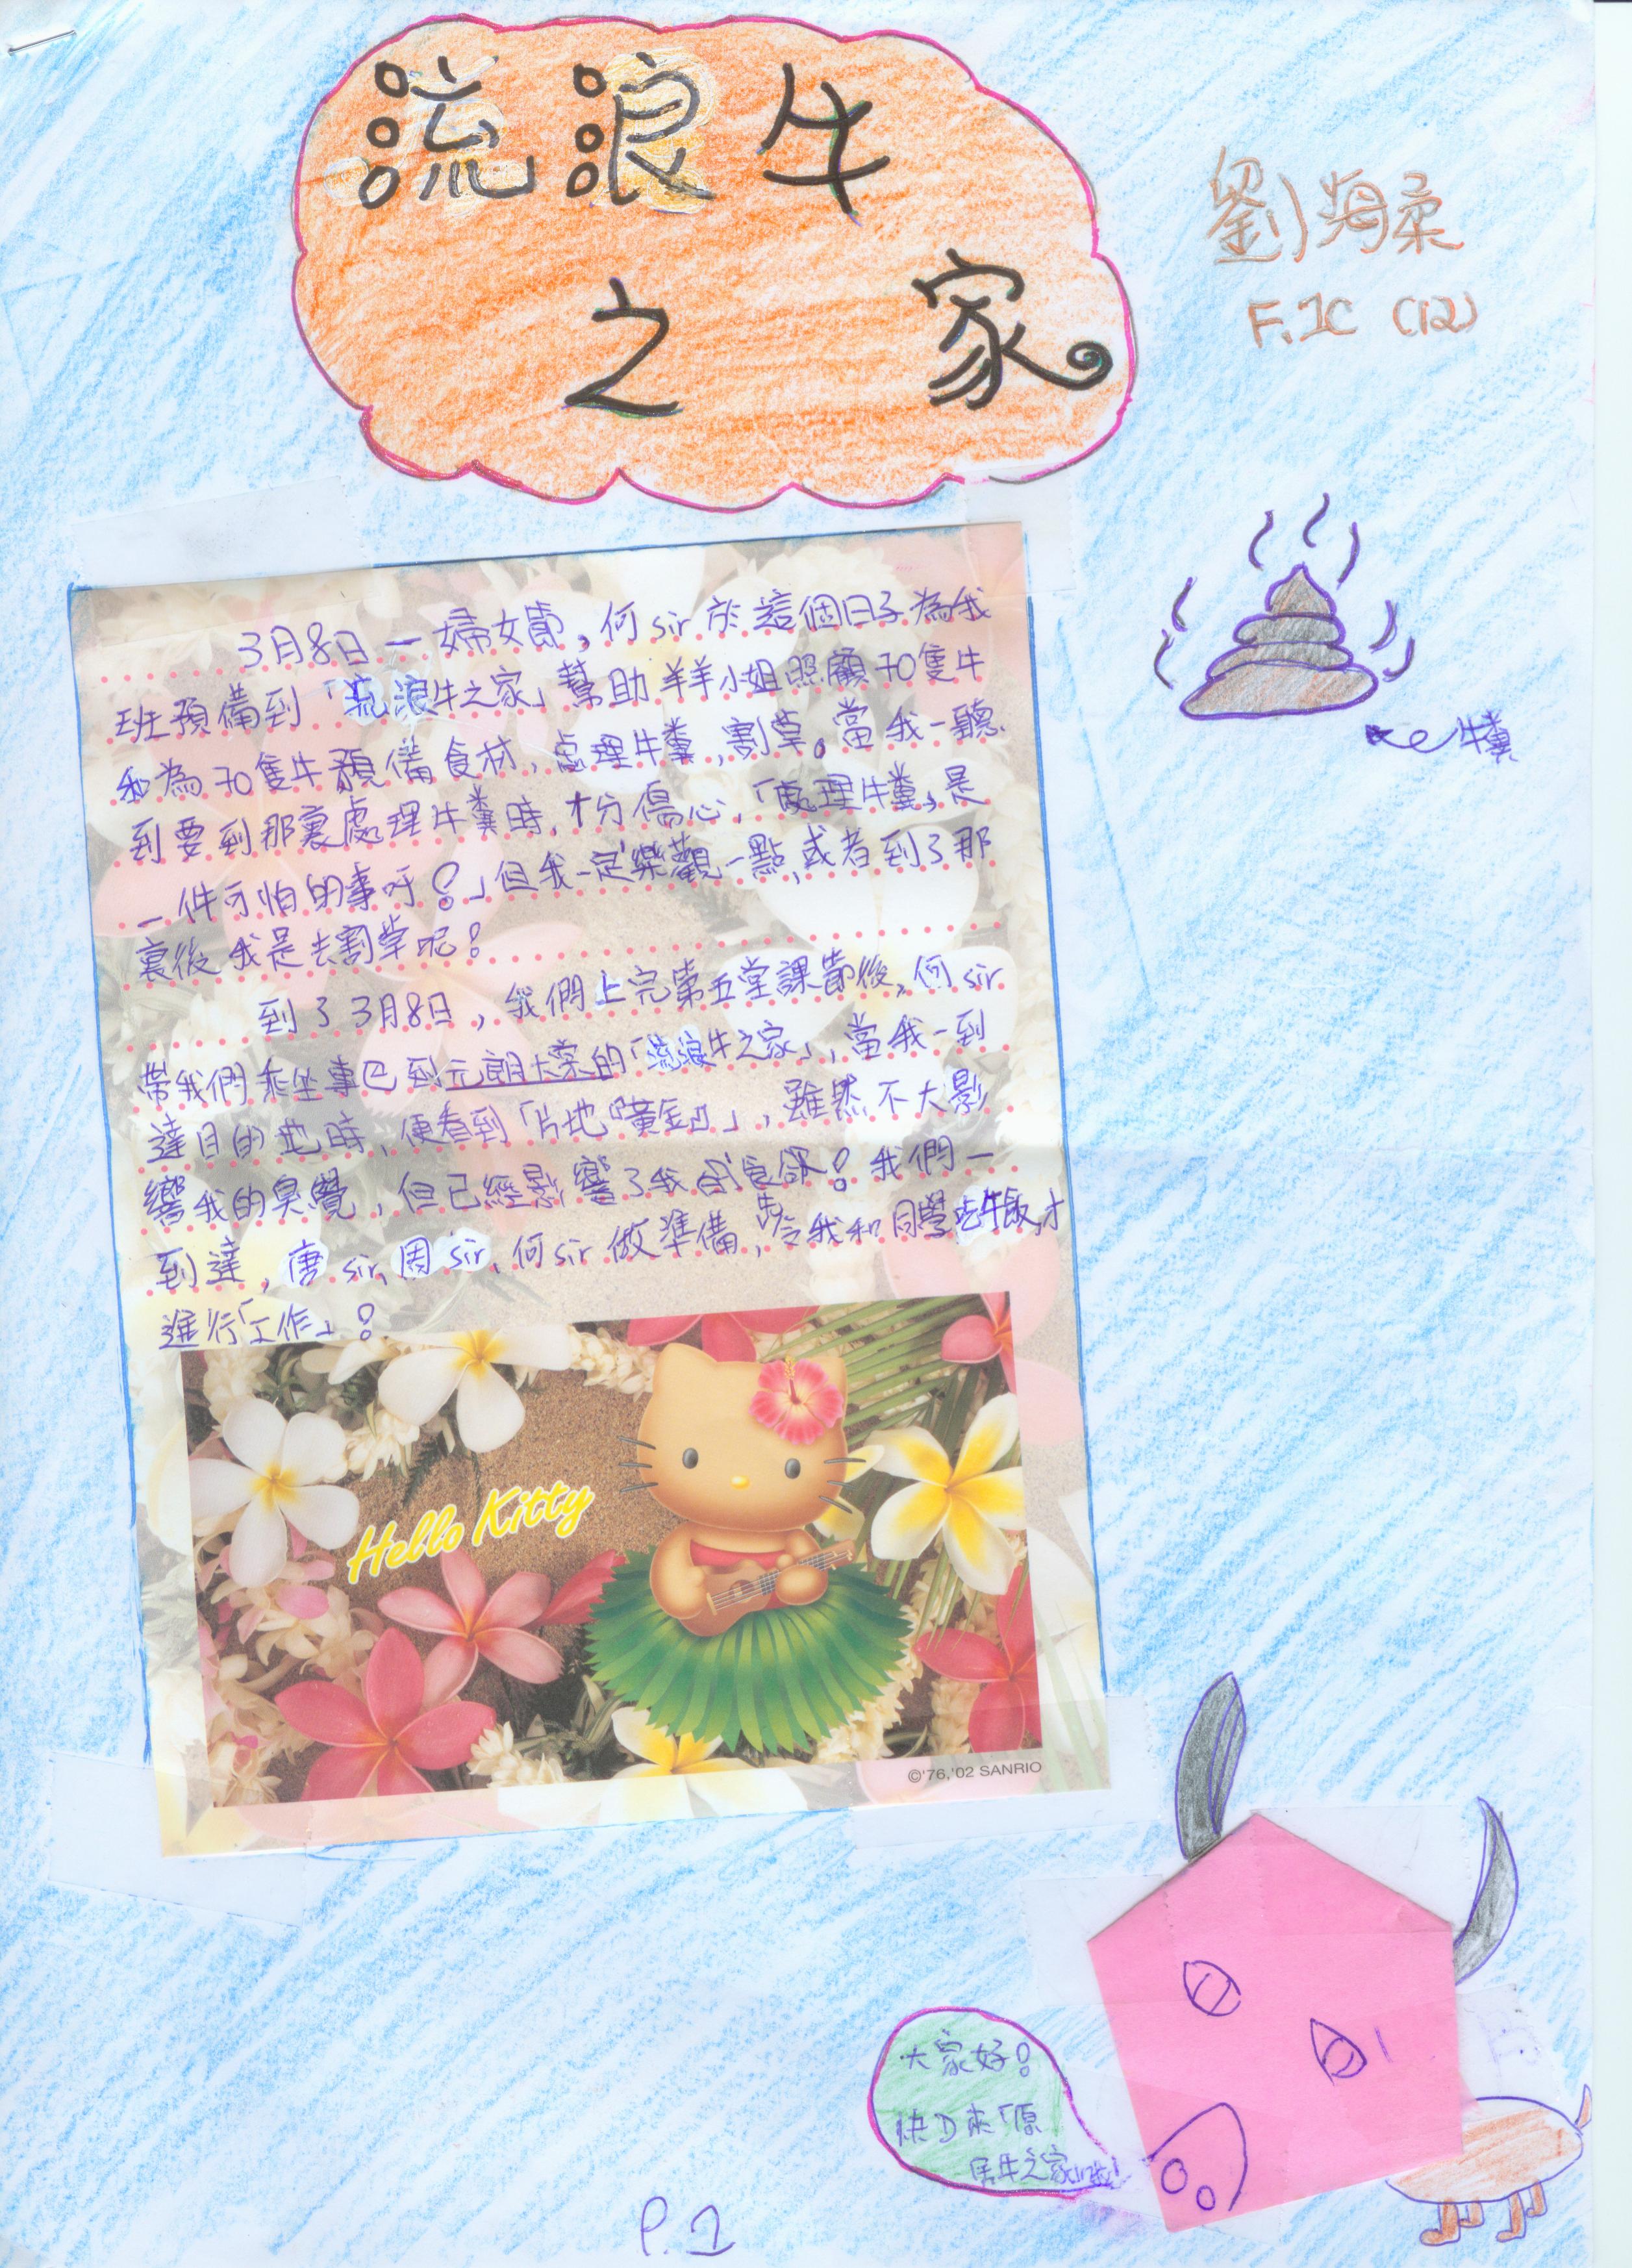 流浪牛
之家
劉海柔
F.1C (12)
牛糞
3月8日 — 婦女節，何sir於這個日子為我
班預備到「流浪牛之家」幫助羊羊小姐照顧70隻牛
和為70隻牛預備食材，處理牛糞，割草。當我一聽
到要到那裏處理牛糞時，十分傷心，「處理牛糞」是
一件可怕的事呀！」但我一定樂觀一點，或者到了那
裏後我是去割草呢！
到了3月8日，我們上完第五堂課節後，何sir
帶我們乘坐專巴到元朗大棠的「流浪牛之家」，當我一到
達目的地時，便看到「片地『黃金』」，雖然不大影
響我的臭覺，但已經影響了我的食慾！我們一
到達，唐sir、周sir、何sir做準備，先令我和同學吃午飯，才
進行「工作」！
Hello Kitty
©'76,'02 SANRIO
大家好！
快D來「原
居牛之家」啦！
P.1